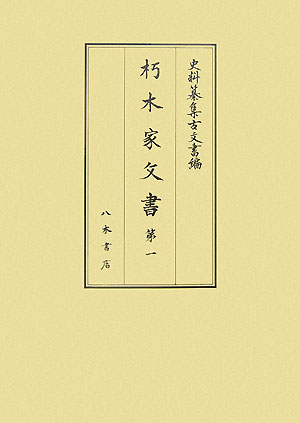 史料纂集古文書編
朽木家文書 第一
八木書店